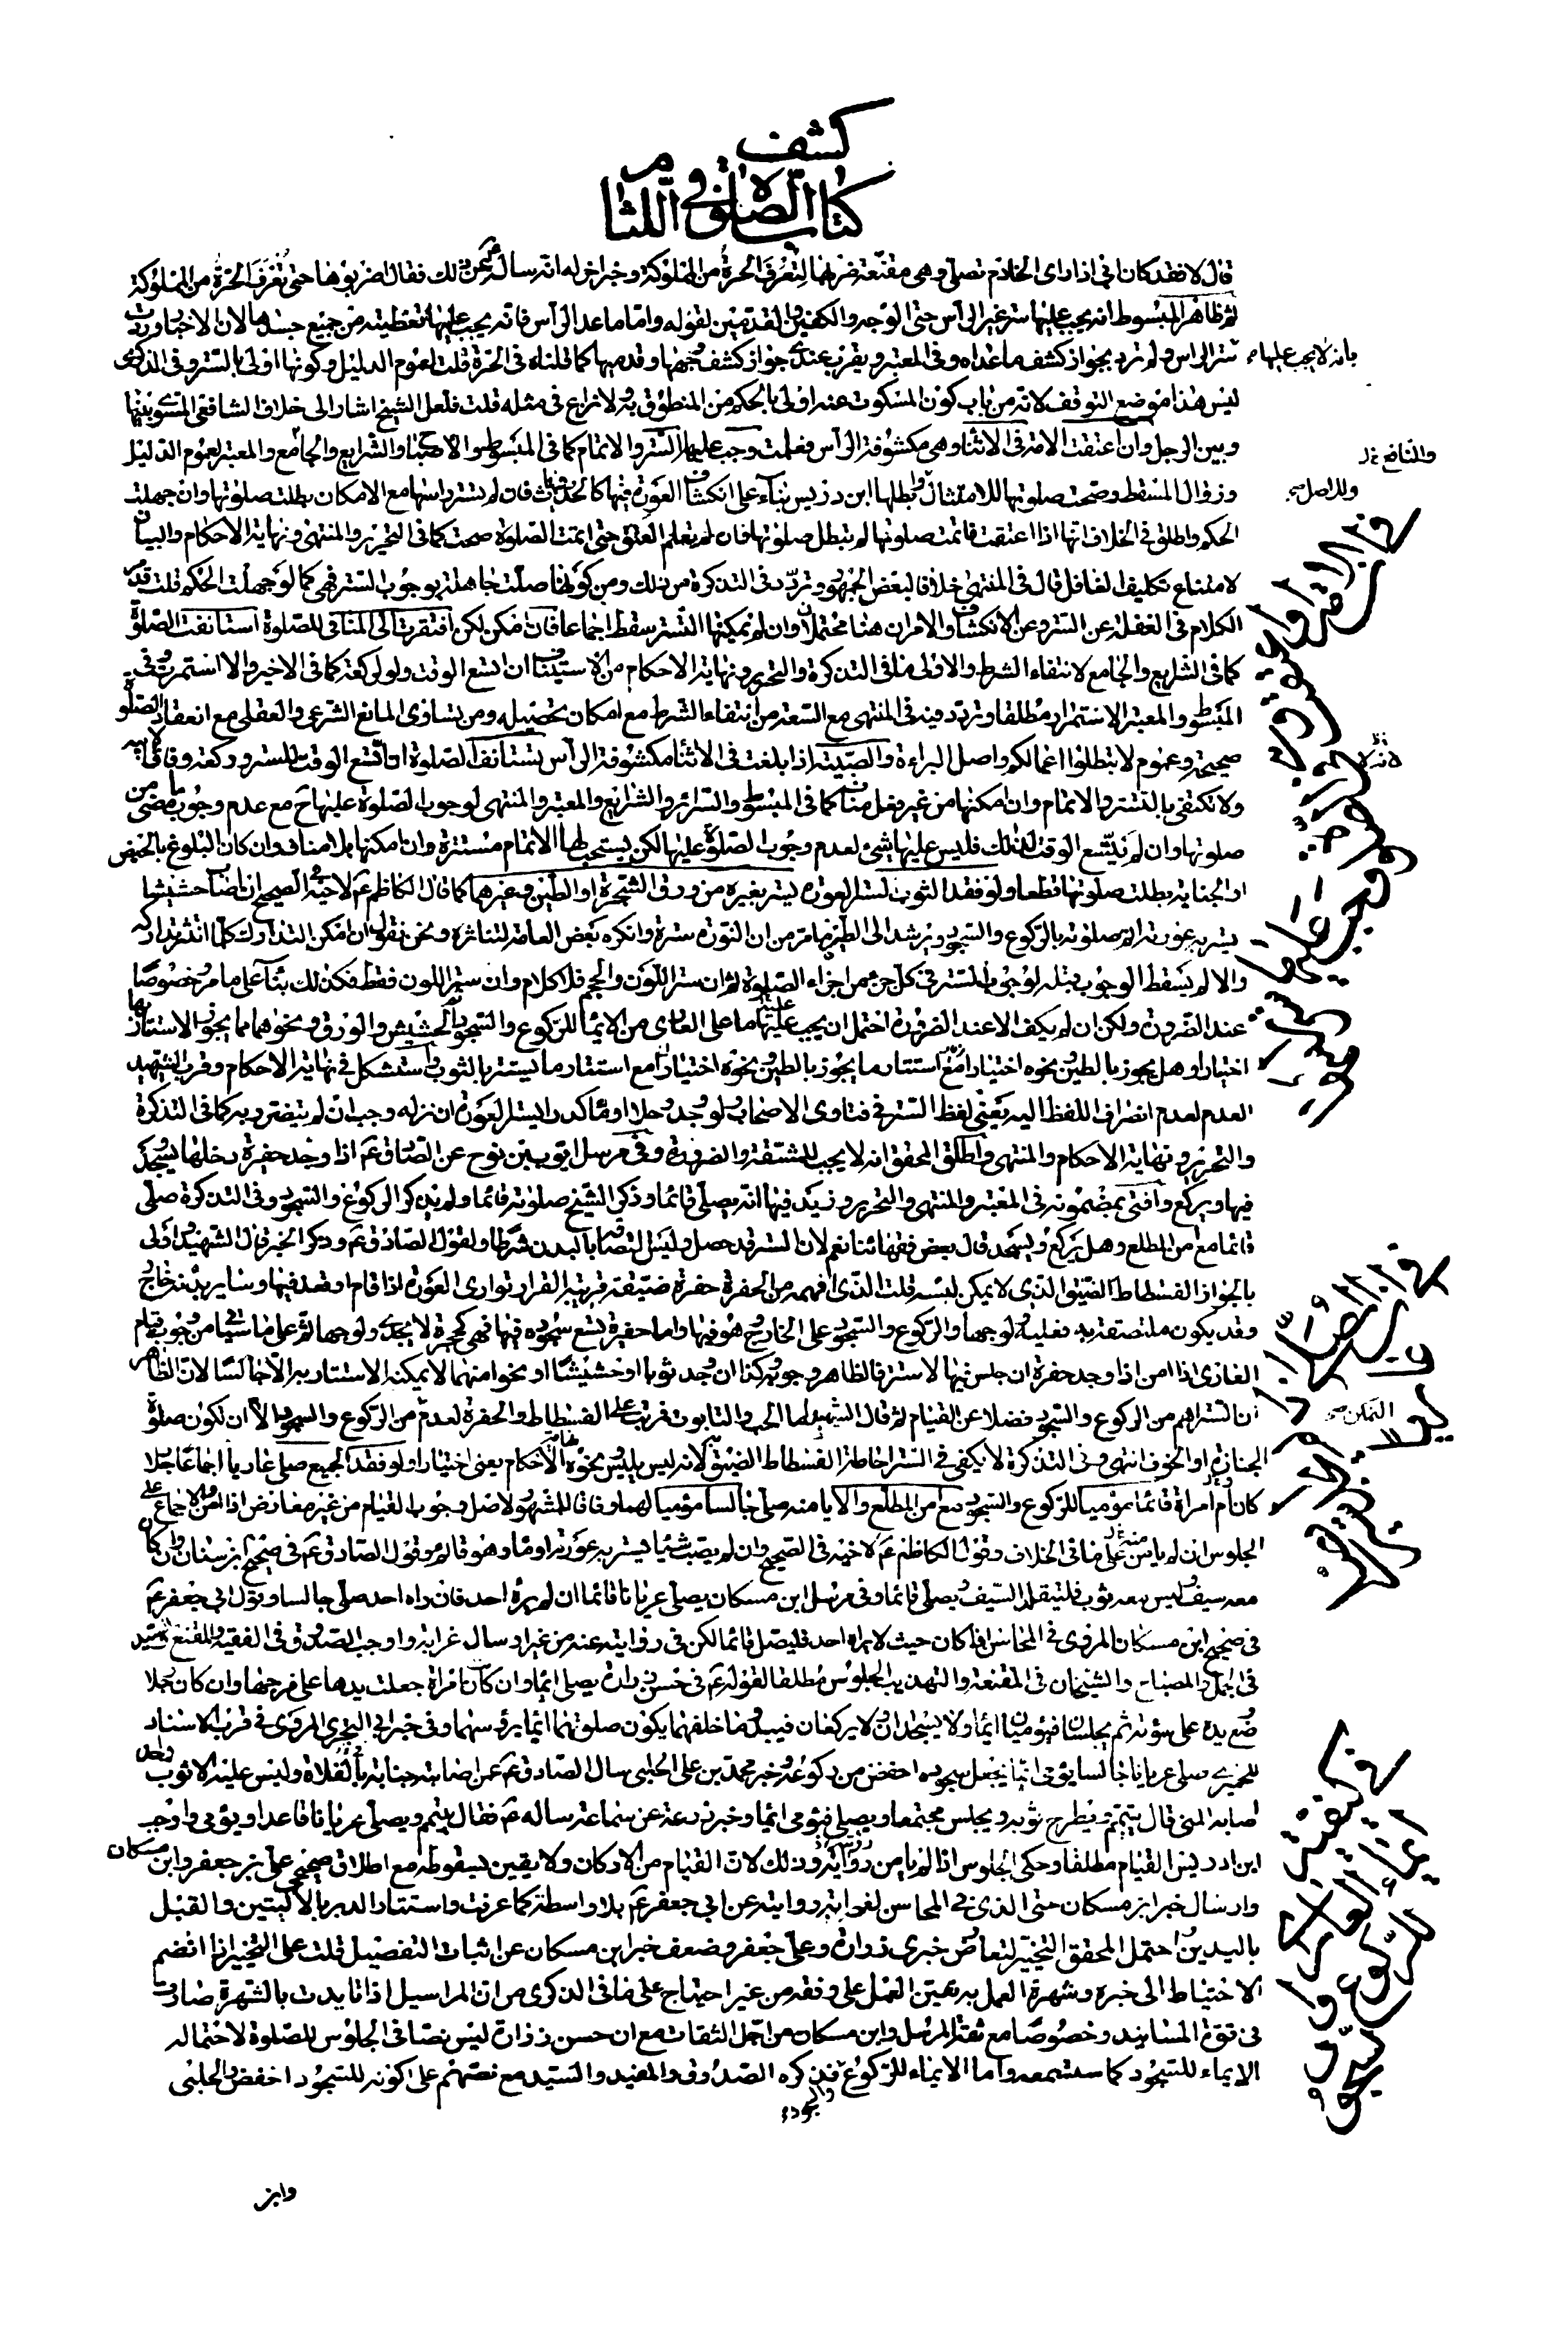 كشف
كتاب الصلوة في اللثام
قال لا فقد كان ابى اذا راى الخادم تصلى وهى مقنعة ضربها لتعرف الحرة من المملوكة وخبر اخر له انه ساله عن ذلك فقال اضربوها حتى تعرف الحرة من المملوكة
ثم ظاهر المبسوط انه يجب عليها ستر غير الراس حتى الوجه والكفين والقدمين لقوله واما ما عدا الراس فانه يجب عليها تغطيته من جميع جسدها لان الاخبار وردت
بانه لا يجب عليها
ستر الراس ولم ترد بجواز كشف ما عداه وفى المعتبر ويقرب عندى جواز كشف وجهها وقدميها كما قلناه فى الحرة قلت لعموم الدليل وكونها اولى بالستر وفى الذكرى
ليس هذا موضع التوقف لانه من باب كون المسكوت عنه اولى بالحكم من المنطوق به ولا نزاع فى مثله قلت فلعل الشيخ اشار الى خلاف الشافعى المسوى بينها
وبين الرجل وان اعتقت الامة فى الاثناء وهى مكشوفة الراس فعلمت وجب عليها الستر والاتمام كما فى المبسوط والاصباح والشرايع والجامع والمعتبر لعموم الدليل
والنافع
وزوال المسقط وصحت صلوتها للامتثال وابطلها ابن دريس بناء على انكشاف العورة فيها كالحدث فان لم تستر راسها مع الامكان بطلت صلوتها وان جهلت
وللاصل صح
الحكم واطلق فى الخلاف انها اذا اعتقت فاتمت صلوتها لم تبطل صلوتها فان لم تعلم العتق حتى اتمت الصلوة صحت كما فى التحرير والمنتهى ونهاية الاحكام والبيان
لامتناع تكليف الغافل قال فى المنتهى خلافا لبعض الجمهور وتردد فى التذكرة من ذلك ومن كونها صلت جاهلة بوجوب الستر فهى كما لو جهلت الحكم قلت قد مر
الكلام فى الغفلة عن الستر وعن الانكشاف والامران هنا محتملان وان لم يمكنها التستر سقط اجماعا فان امكن لكن افتقرت الى المنافى للصلوة استانفت الصلوة
كما فى الشرايع والجامع لانتفاء الشرط والاولى ما فى التذكرة والتحرير ونهاية الاحكام من الاستيناف ان اتسع الوقت ولو لركعة كما فى الاخير والا استمرت وفى
المبسوط والمعتبر الاستمرار مطلقا وتردد فيه فى المنتهى مع السعة من انتفاء الشرط مع امكان تحصيله ومن تساوى المانع الشرعى والعقلى مع انعقاد الصلوة
صحيحة وعموم لا تبطلوا اعمالكم واصل البراءة والصبية اذا بلغت فى الاثناء مكشوفة الراس تستانف الصلوة ان اتسع الوقت للستر وركعة وفاقا
ولا تكتفى بالتستر والاتمام وان امكنها من غير فعل مناف كما فى المبسوط والسرائر والشرايع والمعتبر والمنتهى لوجوب الصلوة عليها ح مع عدم وجوب ما مضى من
صلوتها وان لم يتسع الوقت لذلك فليس عليها شىء لعدم وجوب الصلوة عليها لكن يستحب لها الاتمام مستترة وان امكنها بلا مناف وان كان البلوغ بالحيض
او الجنابة بطلت صلوتها قطعا ولو فقد الثوب لستر العورة ستر بغيره من ورق الشجر او الطين وغيرهما كما قال الكاظم عم لاخيه فى الصحيح ان اصاب حشيشا
يستر به عورته اتم صلوته بالركوع والسجود ويرشد الى الطين ما مر من ان النورة سترة وانكره بعض العامة لتناثره ونحن نقول ان امكن التدارك كلما انتثر تداركه
والا لم يسقط الوجوب قبله لوجوب الستر فى كل جزء من اجزاء الصلوة ثم ان ستر اللون والحجم فلا كلام وان ستر اللون فقط فكذلك بناء على ما مر خصوصا
عند الضرورة ولكن ان لم يكف الا عند الضرورة احتمل ان يجب عليه ما على العارى من الايماء للركوع والسجود الحشيش والورق ونحوهما مما يجوز الاستتار بها
اختيارا وهل يجوز بالطين ونحوه اختيارا مع استتار ما يجوز بالطين ونحوه اختيارا مع استتار ما يستتر بالثوب استشكل فى نهاية الاحكام وقرب الشهيد
العدم لعدم انصراف اللفظ اليه يعنى لفظ الستر فى فتاوى الاصحاب ولو وجد وحلا او ماء كدرا يستر العورة ان نزله وجب ان لم يتضرر به كما فى التذكرة
والتحرير ونهاية الاحكام والمنتهى واطلق المحقق انه لا يجب للمشقة والضرورة وفى مرسل ايوب بن نوح عن الصادق عم اذا وجد حفيرة دخلها يسجد
فيها ويركع وافتى بمضمونه فى المعتبر والمنتهى والتحرير وزيد فيها انه يصلى قائما وذكر الشيخ صلوته قائما ولم يذكر الركوع والسجود وفى التذكرة صلى
قائما مع امن المطلع وهل يركع ويسجد قال بعض فقهائنا نعم لان الستر قد حصل وليس التصاقه بالبدن شرطا ولقول الصادق عم وذكر الخبر قال الشهيد اولى
بالجواز الفسطاط الضيق الذى لا يمكن لبسه قلت الذى افهمه من الحفرة حفرة ضيقة قريبة القرار توارى العورة اذا قام او قعد فيها وساير بدنه خارج
وقد يكون ملتصقة به فعليه لوجها والركوع والسجود على الخارج وهو فيها واما حفيرة يتسع سجوده فيها فهى كحجرة لا يجدى ولوجها ثم على ما سياتى من وجوب قيام
العارى اذا امن اذا وجد حفرة ان جلس فيها لاستتر فالظاهر وجوبه وكذا ان وجد ثوبا او حشيشا او نحوا منهما لا يمكنه الاستتار به الا جالسا لان الظاهر
ان الستر اهم من الركوع والسجود فضلا عن القيام ثم قال الشهيد اما الحب والتابوت فمرتب على الفسطاط والحفرة لعدم التمكن من الركوع والسجود الا ان تكون صلوة
التمكن صح
الجنازة او الخوف انتهى وفى التذكرة لا يكفى فى الستر احاطة الفسطاط الضيق لانه ليس بلبس ونحوه نهاية الاحكام يعنى اختيارا ولو فقد الجميع صلى عاريا اجماعا رجلا
كان ام امراة قائما مؤميا للركوع والسجود مع امن المطلع والا يامنه صلى جالسا مؤميا لهما وفاقا للمشهور لاصل وجوب القيام من غير معارض اذا امن والاجماع على
الجلوس ان لم يامن على ما فى الخلاف وقول الكاظم عم لاخيه فى الصحيح وان لم يصب شيئا يستر به عورته اوما وهو قائم وقول الصادق عم فى صحيح ابن سنان وان كان
معه سيف وليس معه ثوب فليتقلد السيف يصلى قائما وفى مرسل ابن مسكان يصلى عريانا قائما ان لم يره احد فان راه احد صلى جالسا وقول ابى جعفر عم
فى صحيح ابن مسكان المروى فى المحاسن اذا كان حيث لا يراه احد فليصل قائما لكن فى روايته عنه من غير ارسال غرابة واوجب الصدوق فى الفقيه والمقنع والسيد
فى الجمل والمصباح والشيخان فى المقنعة والتهذيب الجلوس مطلقا لقوله عم فى حسن زرارة يصلى ايماء وان كان امراة جعلت يدها على فرجها وان كان رجلا
وضع يده على سؤته ثم يجلسان فيؤميان ايماء ولا يسجدان ولا يركعان فيبدو ما خلفهما يكون صلوتهما ايماء برؤسهما وفى خبر ابى البخترى المروى فى قرب الاسناد
للحميرى صلى عريانا جالسا يؤمى ايماء يجعل سجوده اخفض من ركوعه وخبر محمد بن على الحلبى سال الصادق عم عمن اصابته جنابة بالفلاة وليس عليه الا ثوب واحد
اصابه المنى قال يتيمم ويطرح ثوبه ويجلس مجتمعا ويصلى فيؤمى ايماء وخبر زرعة عن سماعة ساله عم فقال يتيمم ويصلى عريانا قاعدا ويؤمى واوجب
ابن ادريس القيام مطلقا وحكى الجلوس اذا لم يامن رواية وذلك لان القيام من الاركان ولا يقين بسقوطه مع اطلاق صحيحى على بن جعفر وابن مسكان
وارسال خبر ابن مسكان حتى الذى فى المحاسن لغرابة روايته عن ابى جعفر عم بلا واسطة كما عرفت واستتار الدبر بالاليتين والقبل
باليدين واحتمل المحقق التخيير لتعارض خبرى زرارة وعلى بن جعفر وضعف خبر ابن مسكان عن اثبات التفصيل قلت على التخيير اذا انضم
الاختياط الى خبره وشهرة العمل به تعين العمل على وفقه من غير احتياج على ما فى الذكرى من ان المراسيل اذا تايدت بالشهرة صارت
فى قوة المسانيد وخصوصا مع ثقة المرسل وابن مسكان من اجل الثقات مع ان حسن زرارة ليس نصا فى الجلوس للصلوة لاحتماله
الايماء للسجود كما ستسمعه واما الايماء للركوع والسجود فذكره الصدوق والمفيد والسيد مع نصهم على كونه للسجود اخفض والحلبى
وابن